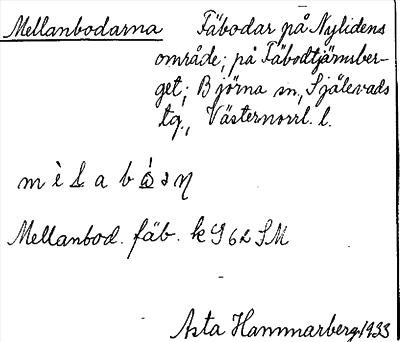 Mellanbodarna Fäbodar på Nylidens
område; på Fäbodtjärnsber-
get; Björna sn., Själevads
tg., Västernorrl. l.
Mellanbod. fäb. k 9 62 SM
Asta Hammarberg 1933